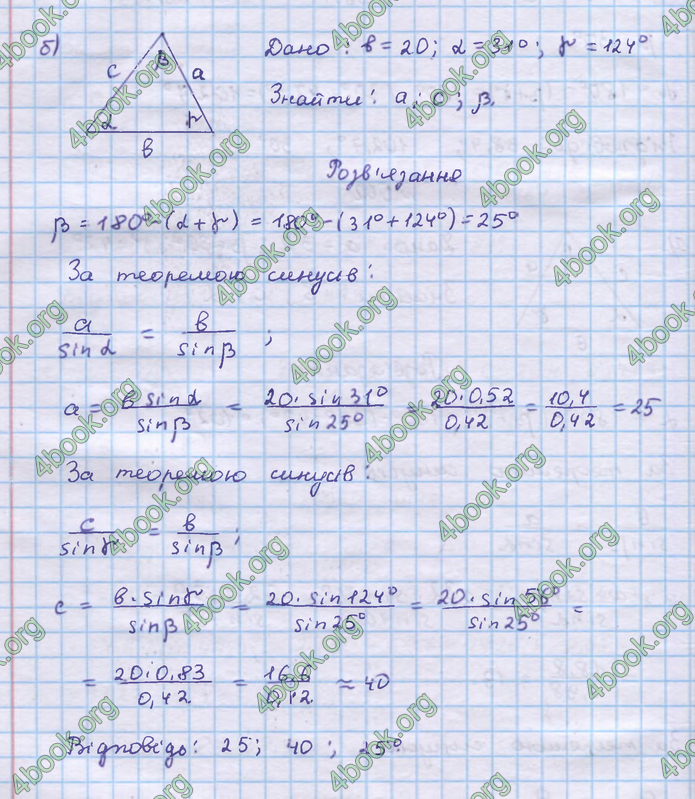 б)
β
c a
α γ
в
Дано: в = 20; α = 31°; γ = 124°
Знайти: a; c; β.
Розв'язання
β = 180° - (α + γ) = 180° - (31° + 124°) = 25°
За теоремою синусів:
a/sin α = в/sin β ;
a = в sin α/sin β = 20 · sin 31°/sin 25° = 20 · 0,52/0,42 = 10,4/0,42 = 25
За теоремою синусів:
c/sin γ = в/sin β ;
c = в · sin γ/sin β = 20 · sin 124°/sin 25° = 20 · sin 56°/sin 25° =
= 20 · 0,83/0,42 = 16,6/0,42 ≈ 40
Відповідь: 25; 40; 25°.
4book.org